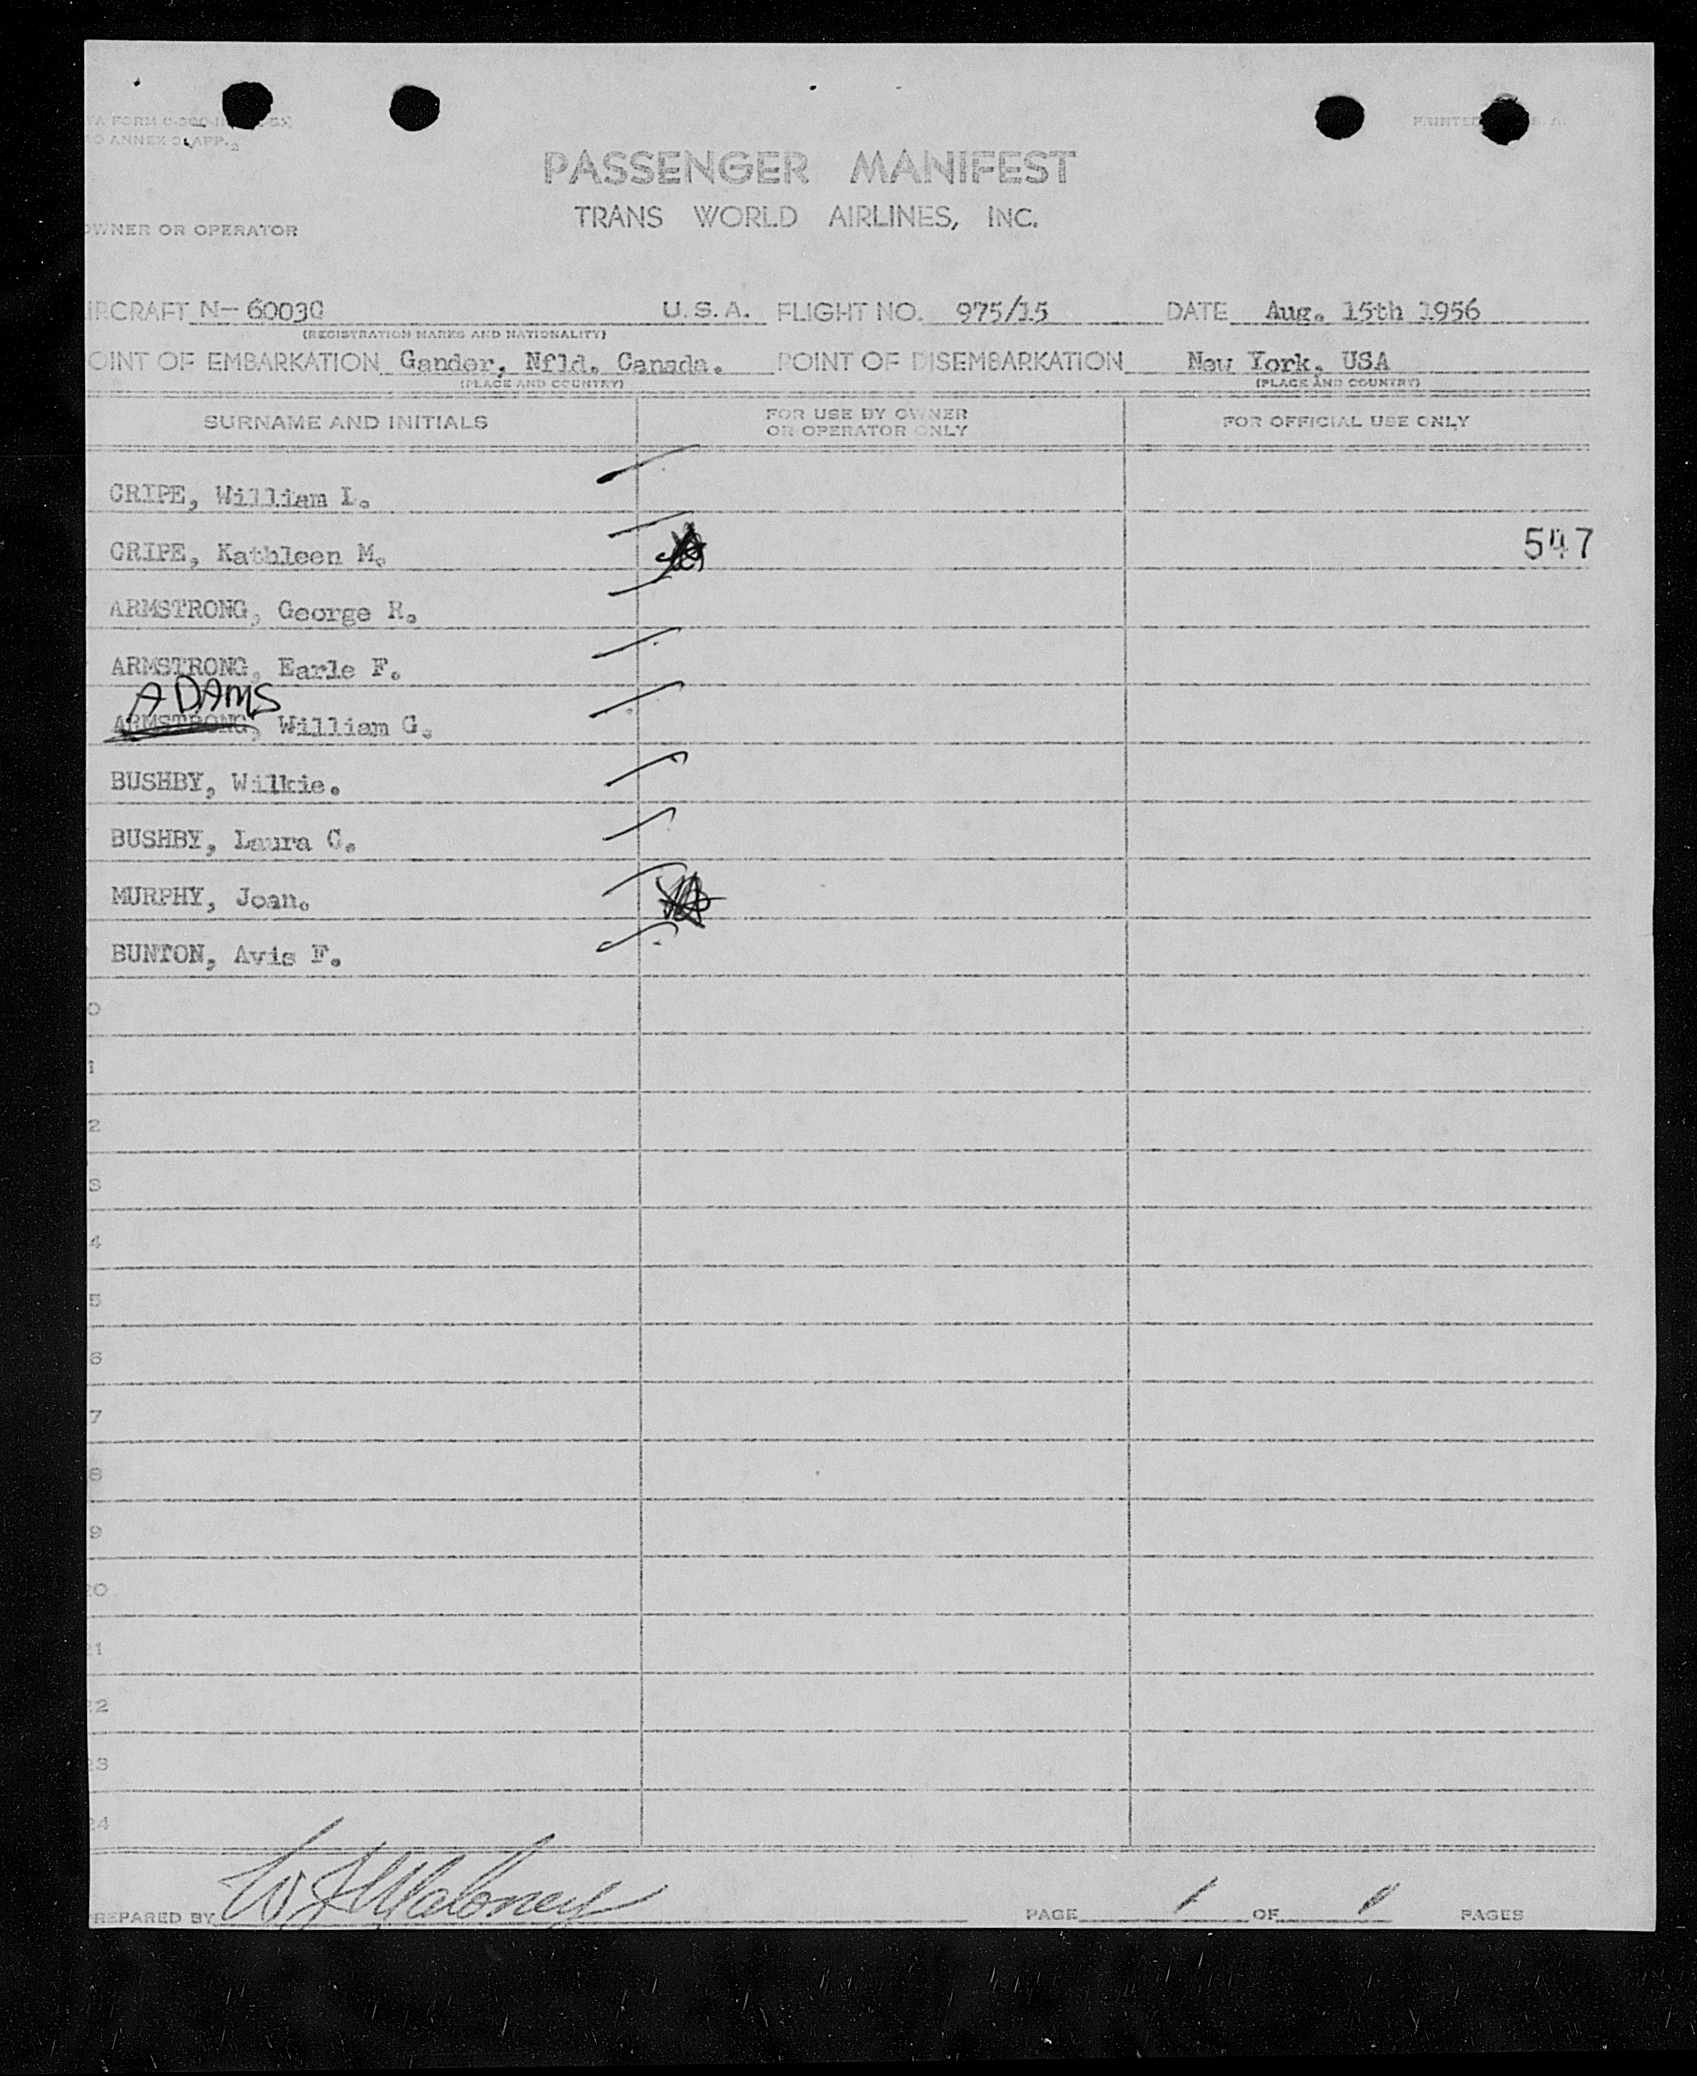 ANNEX 9, APP.
PASSENGER MANIFEST
TRANS WORLD AIRLINES, INC.
OWNER OR OPERATOR
AIRCRAFT N- 6003C U.S.A. FLIGHT NO. 975/15 DATE Aug. 15th 1956
(REGISTRATION MARKS AND NATIONALITY)
POINT OF EMBARKATION Gander, Nfld. Canada. POINT OF DISEMBARKATION New York, USA
(PLACE AND COUNTRY) (PLACE AND COUNTRY)
SURNAME AND INITIALS FOR USE BY OWNER OR OPERATOR ONLY FOR OFFICIAL USE ONLY
CRIPE, William L.
CRIPE, Kathleen M. 547
ARMSTRONG, George R.
ARMSTRONG, Earle F.
ADAMS
ARMSTRONG, William G.
BUSHBY, Wilkie.
BUSHBY, Laura C.
MURPHY, Joan.
BUNTON, Avis F.
0
1
2
3
4
5
6
7
8
9
20
21
22
23
24
PREPARED BY W J Maloney PAGE 1 OF 1 PAGES